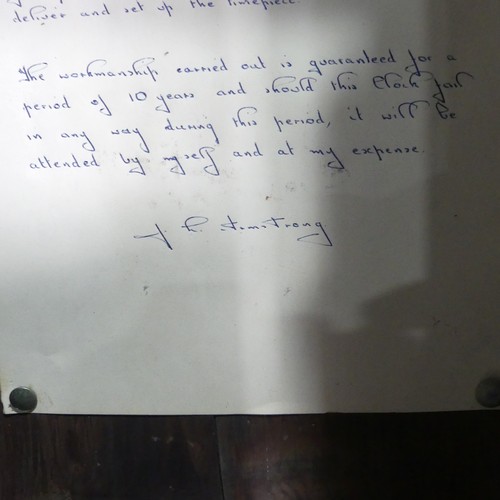 deliver and set up the timepiece.
The workmanship carried out is guaranteed for a
period of 10 years and should this Clock fail
in any way during this period, it will be
attended by myself and at my expense.
Armstrong